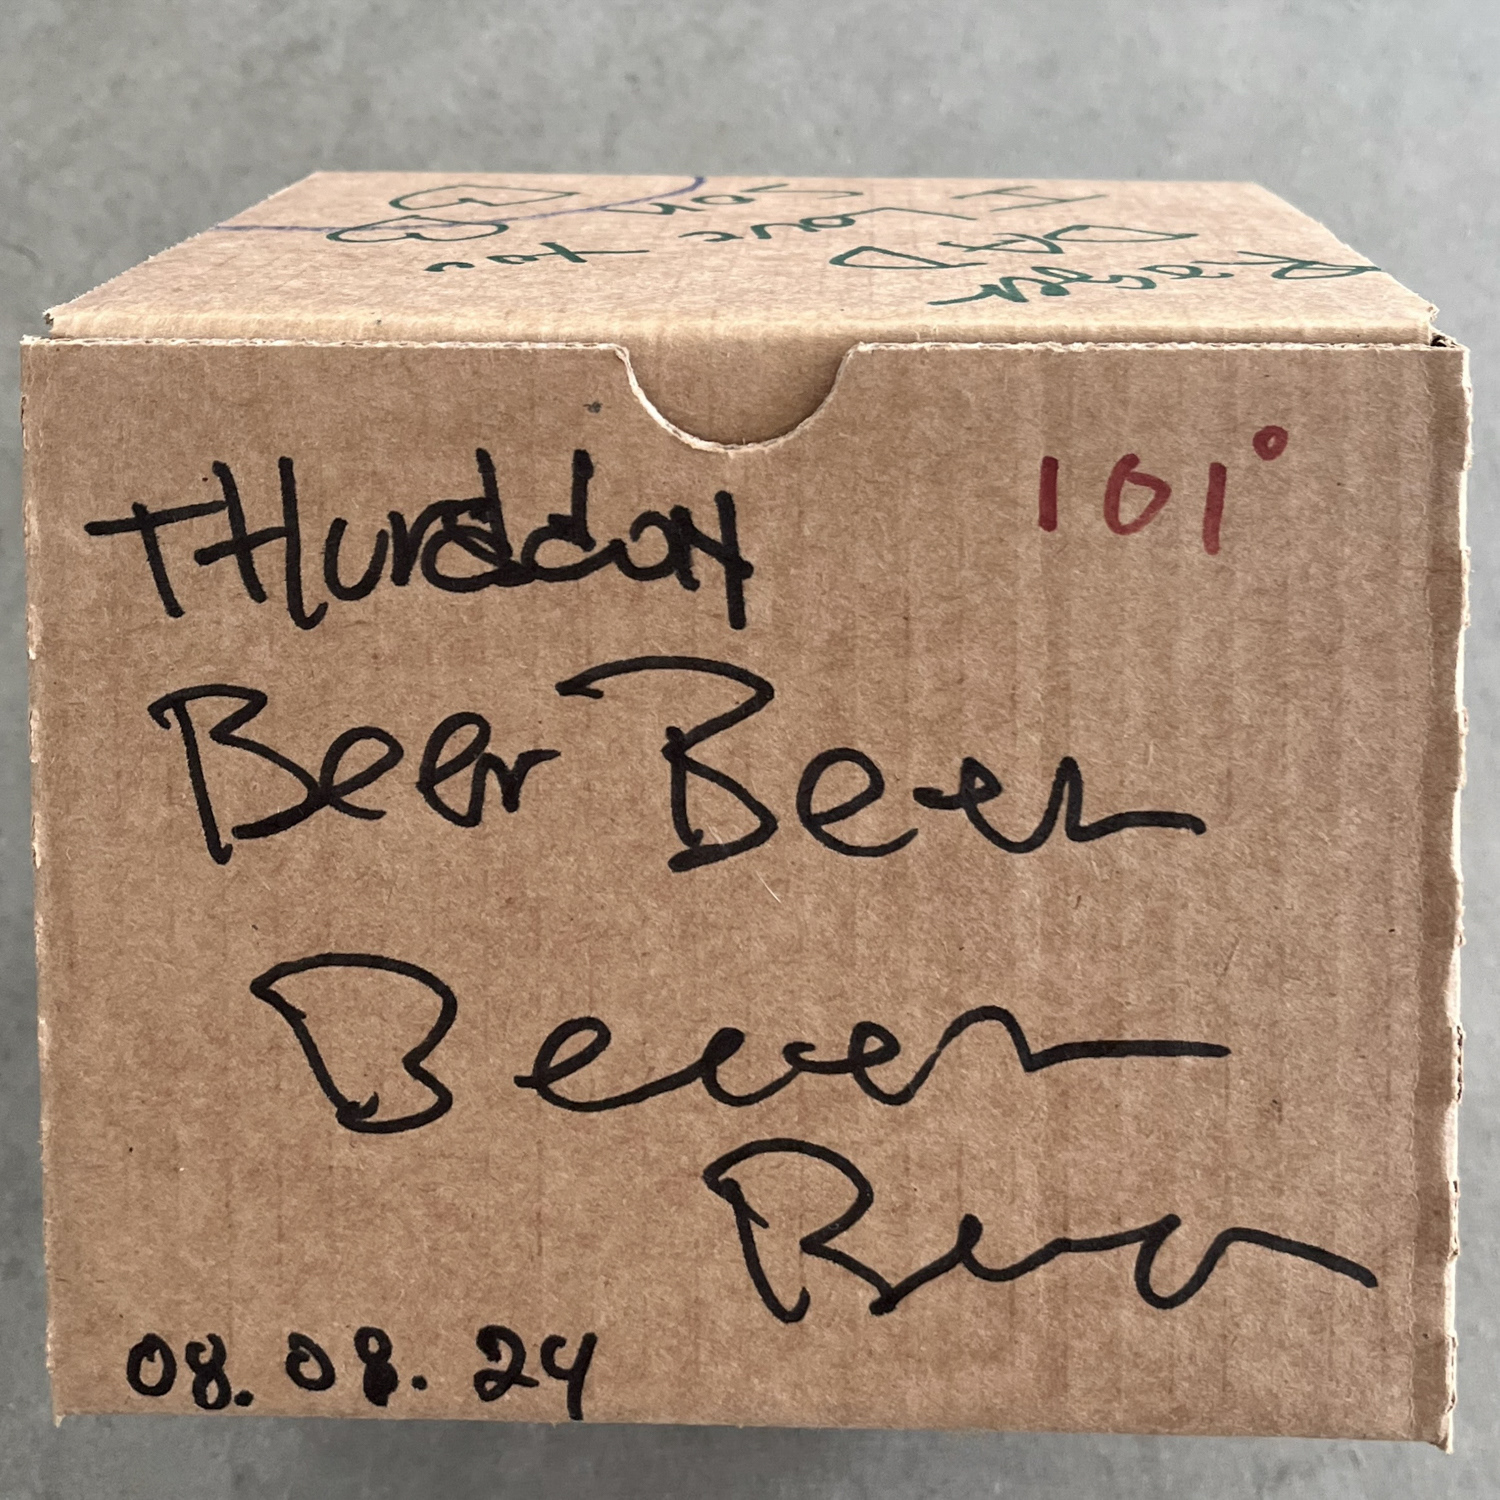 I Love You
Son
DAD
THursday
101°
Beer Beer
Beeer
Beer
08.08.24